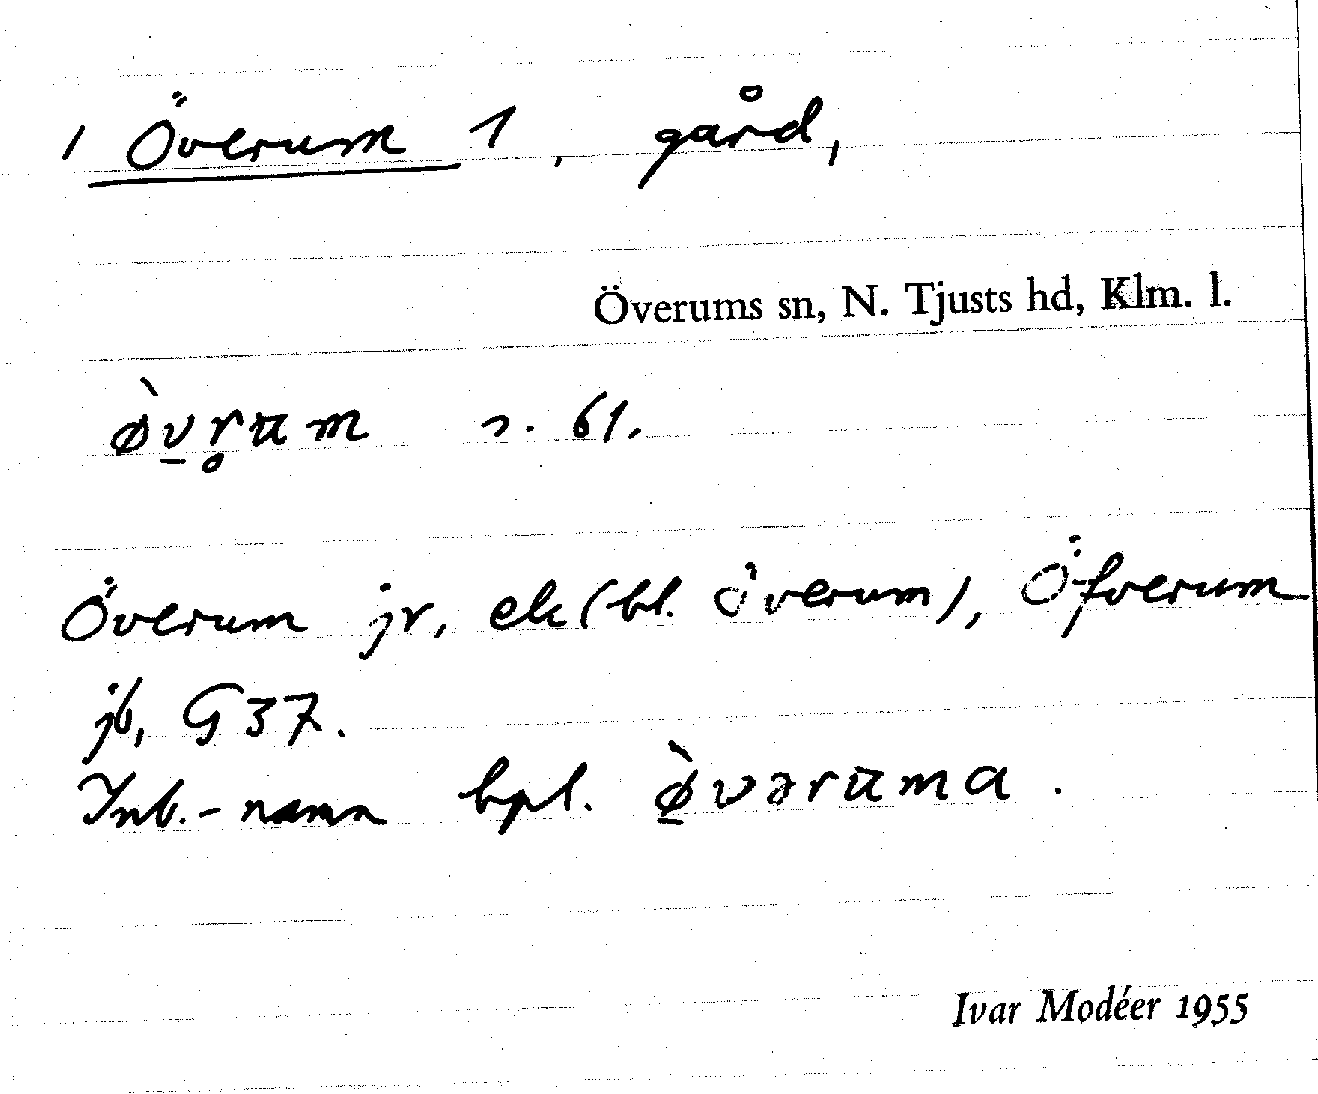 / Överum 1, gård,
Överums sn, N. Tjusts hd, Klm. l.
ø̀v̠r̥um s. 61.
Överum jr, ek (bl. Överum), Öfverum
jb, G 37.
Inb.-namn bpl. ø̠̀vəruma.
Ivar Modéer 1955